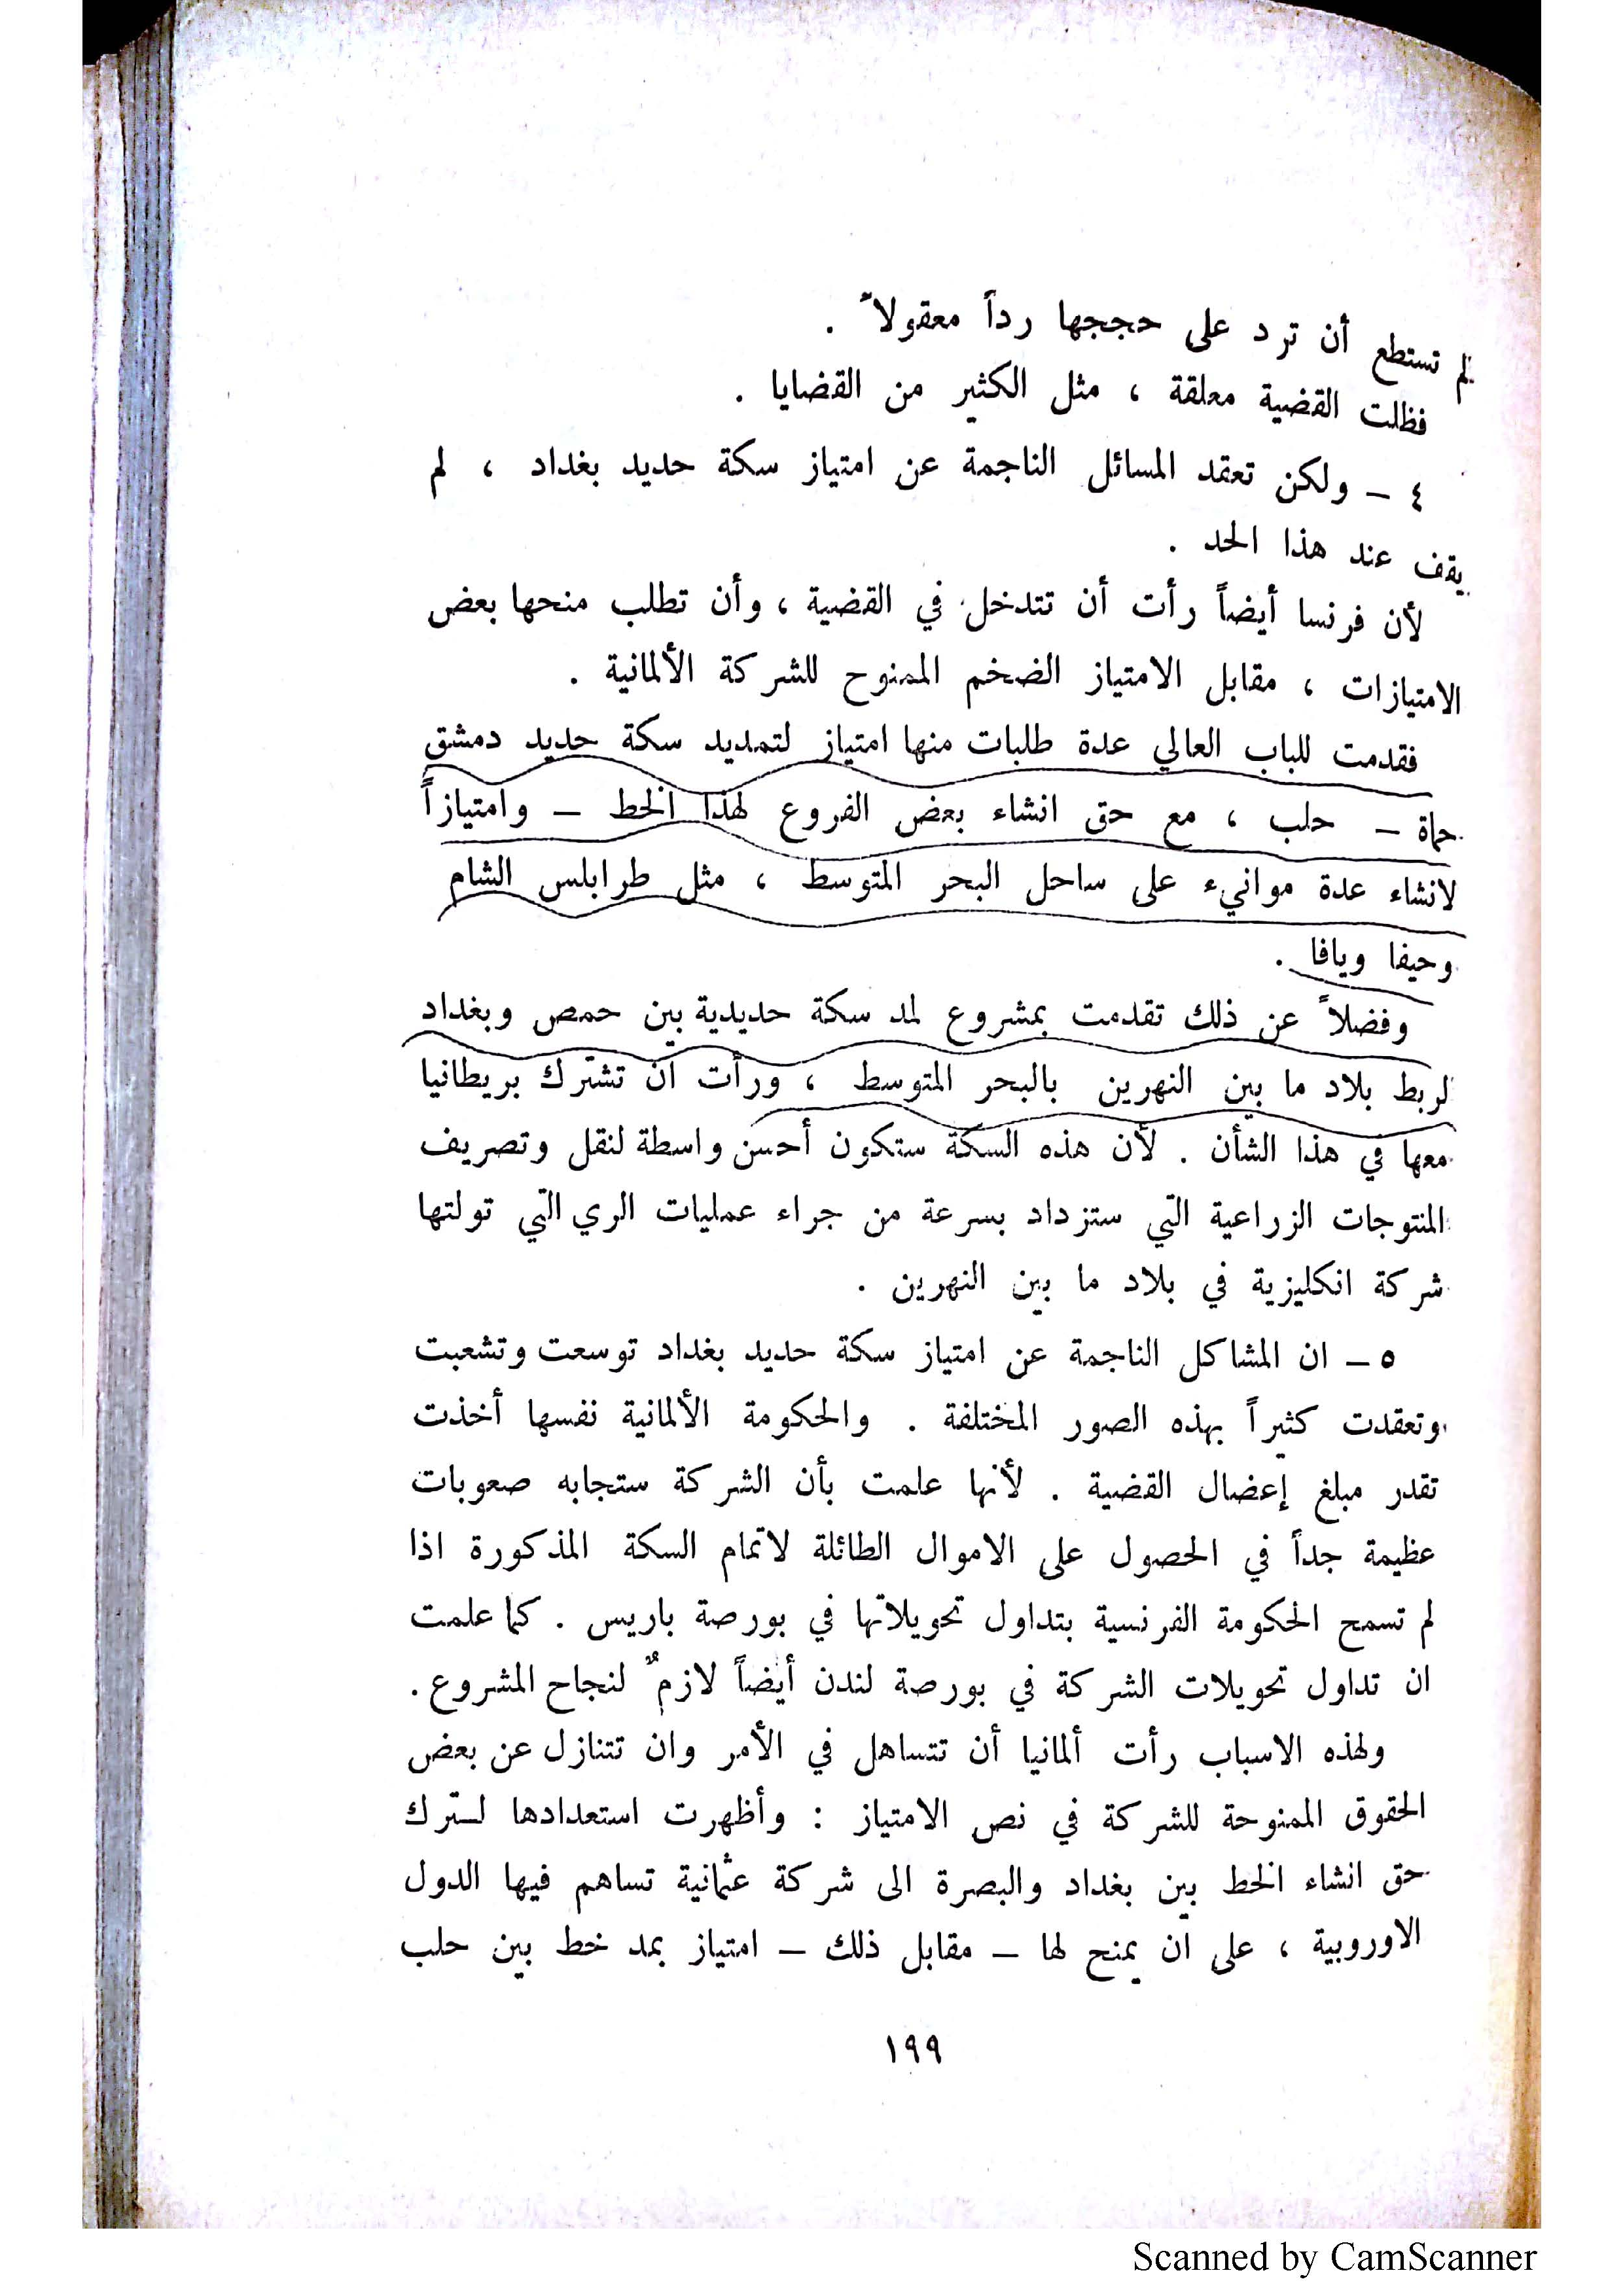 لم تستطع أن ترد على حججها رداً معقولاً .
فظلت القضية معلقة ، مثل الكثير من القضايا .
٤ – ولكن تعقد المسائل الناجمة عن امتياز سكة حديد بغداد ، لم
يقف عند هذا الحد .
لأن فرنسا أيضاً رأت أن تتدخل في القضية ، وأن تطلب منحها بعض
الامتيازات ، مقابل الامتياز الضخم الممنوح للشركة الألمانية .
فقدمت للباب العالي عدة طلبات منها امتياز لتمديد سكة حديد دمشق
حماة – حلب ، مع حق انشاء بعض الفروع لهذا الخط – وامتيازاً
لانشاء عدة موانيء على ساحل البحر المتوسط ، مثل طرابلس الشام
وحيفا ويافا .
وفضلاً عن ذلك تقدمت بمشروع لمد سكة حديدية بين حمص وبغداد
لربط بلاد ما بين النهرين بالبحر المتوسط ، ورأت ان تشترك بريطانيا
معها في هذا الشأن . لأن هذه السكة ستكون أحسن واسطة لنقل وتصريف
المنتوجات الزراعية التي ستزداد بسرعة من جراء عمليات الري التي تولتها
شركة انكليزية في بلاد ما بين النهرين .
٥ – ان المشاكل الناجمة عن امتياز سكة حديد بغداد توسعت وتشعبت
وتعقدت كثيراً بهذه الصور المختلفة . والحكومة الألمانية نفسها أخذت
تقدر مبلغ إعضال القضية . لأنها علمت بأن الشركة ستجابه صعوبات
عظيمة جداً في الحصول على الاموال الطائلة لاتمام السكة المذكورة اذا
لم تسمح الحكومة الفرنسية بتداول تحويلاتها في بورصة باريس . كما علمت
ان تداول تحويلات الشركة في بورصة لندن أيضاً لازمٌ لنجاح المشروع .
ولهذه الاسباب رأت ألمانيا أن تتساهل في الأمر وان تتنازل عن بعض
الحقوق الممنوحة للشركة في نص الامتياز : وأظهرت استعدادها لترك
حق انشاء الخط بين بغداد والبصرة الى شركة عثمانية تساهم فيها الدول
الاوروبية ، على ان يمنح لها – مقابل ذلك – امتياز بمد خط بين حلب
١٩٩
Scanned by CamScanner